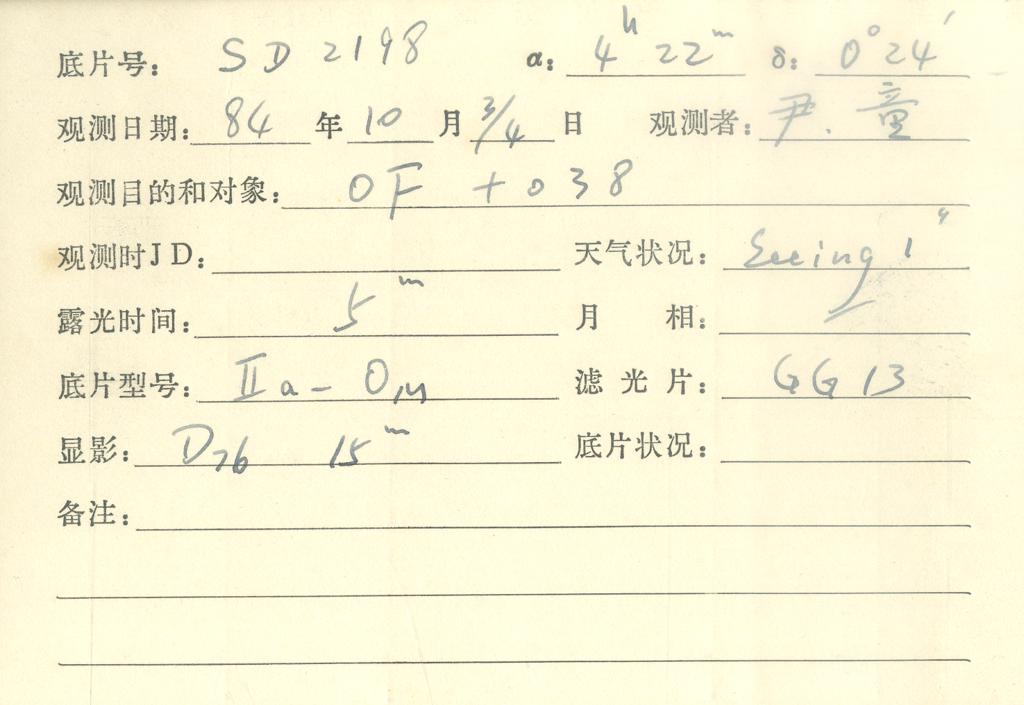 底片号: SD 2198 α: 4h 22m δ: 0°24′
观测日期: 84 年 10 月 3/4 日 观测者: 尹.童
观测目的和对象: OF +038
观测时JD: 天气状况: Seeing 1″
露光时间: 5m 月 相:
底片型号: IIa-O, 滤光片: GG13
显影: D76 15m 底片状况:
备注: